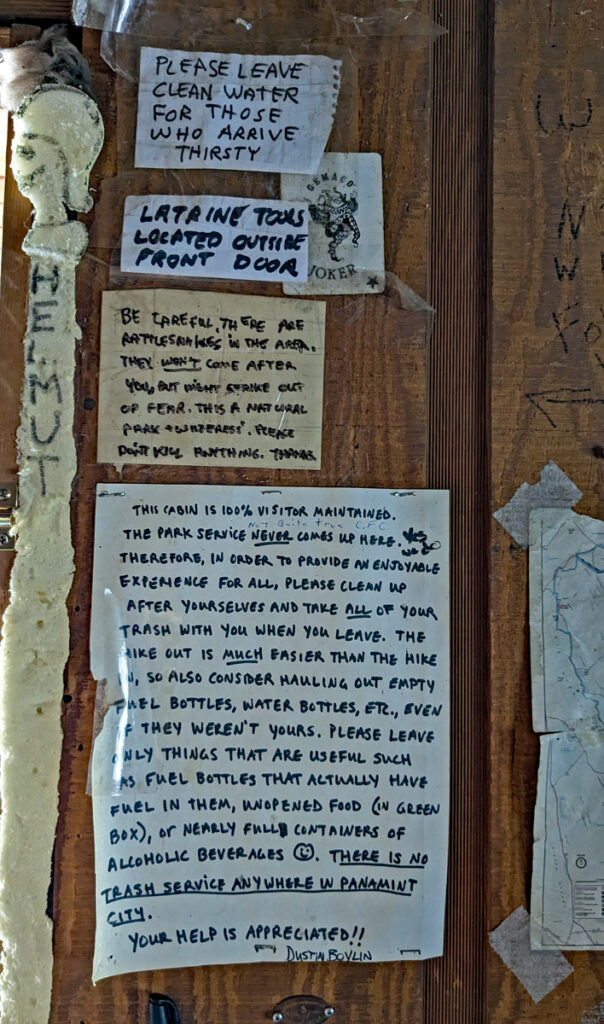 PLEASE LEAVE
CLEAN WATER
FOR THOSE
WHO ARRIVE
THIRSTY
GEMACO
JOKER
LATRINE TOOLS
LOCATED OUTSIDE
FRONT DOOR
HELMUT
BE CAREFUL, THERE ARE
RATTLESNAKES IN THE AREA.
THEY WON'T COME AFTER
YOU, BUT MIGHT STRIKE OUT
OF FEAR. THIS A NATURAL
PARK PLEASE
DON'T KILL ANYTHING. THANKS.
THIS CABIN IS 100% VISITOR MAINTAINED.
Not Quite true C.F.C
THE PARK SERVICE NEVER COMES UP HERE. Yes
THEREFORE, IN ORDER TO PROVIDE AN ENJOYABLE
EXPERIENCE FOR ALL, PLEASE CLEAN UP
AFTER YOURSELVES AND TAKE ALL OF YOUR
TRASH WITH YOU WHEN YOU LEAVE. THE
HIKE OUT IS MUCH EASIER THAN THE HIKE
IN, SO ALSO CONSIDER HAULING OUT EMPTY
FUEL BOTTLES, WATER BOTTLES, ETC., EVEN
IF THEY WEREN'T YOURS. PLEASE LEAVE
ONLY THINGS THAT ARE USEFUL SUCH
AS FUEL BOTTLES THAT ACTUALLY HAVE
FUEL IN THEM, UNOPENED FOOD (IN GREEN
BOX), OR NEARLY FULL CONTAINERS OF
ALCOHOLIC BEVERAGES ☺. THERE IS NO
TRASH SERVICE ANYWHERE IN PANAMINT
CITY.
YOUR HELP IS APPRECIATED!!
DUSTIN BOYLIN